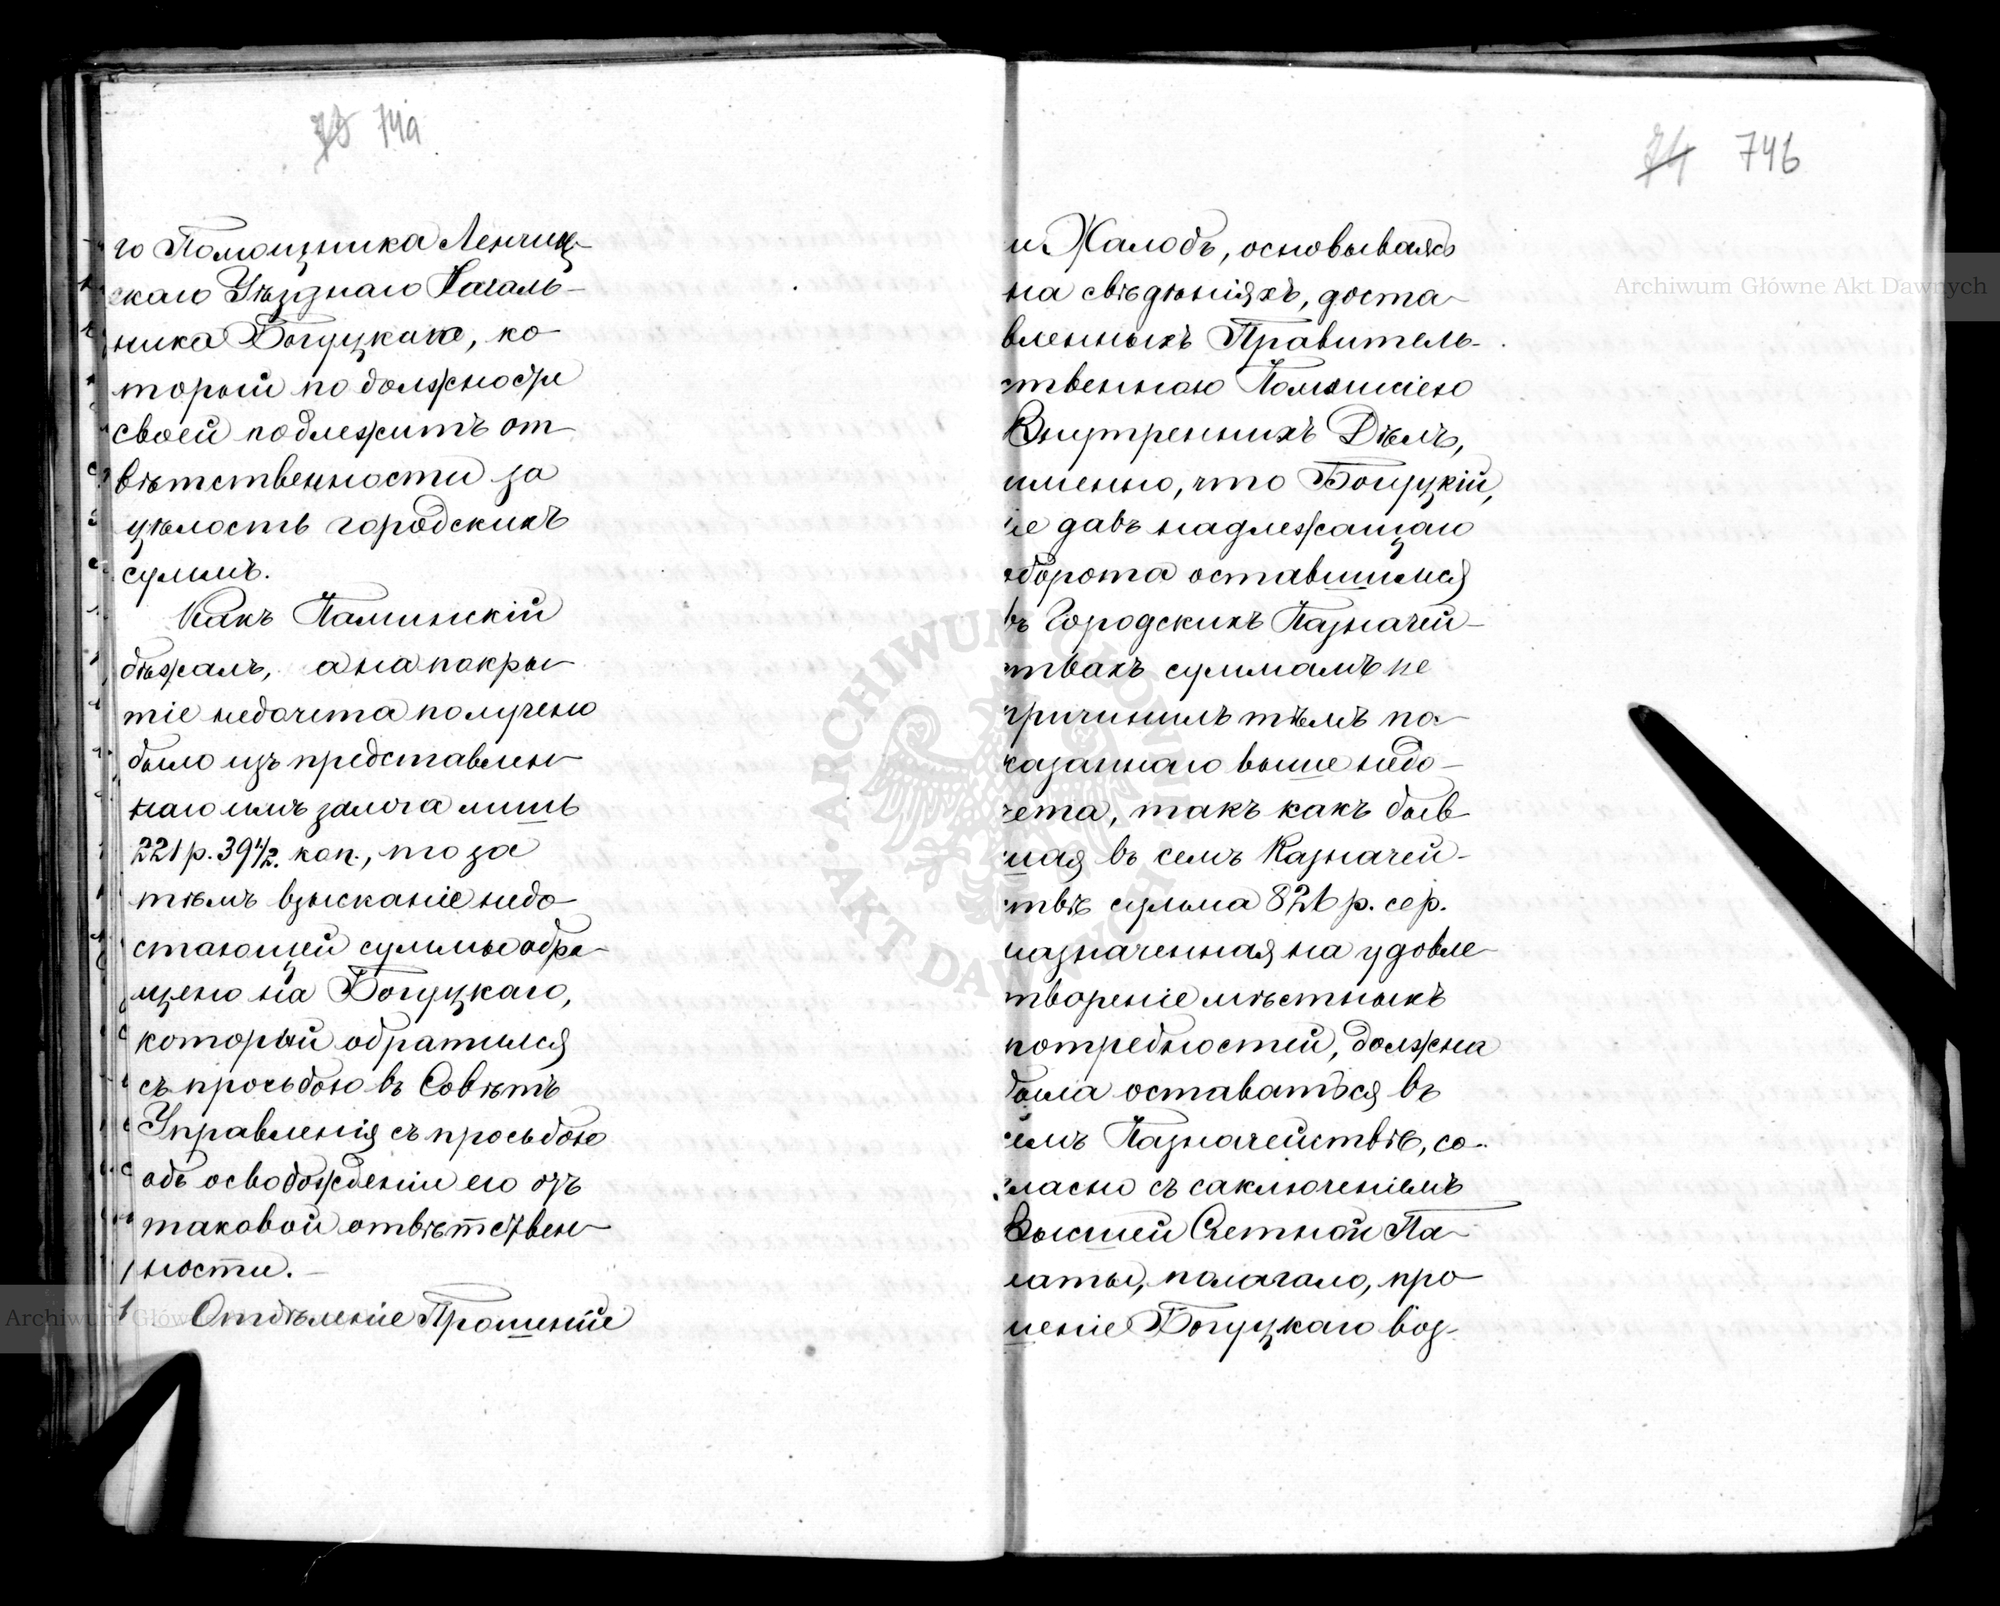 70 74а
го Помощника Ленчиц-
скаго Уѣзднаго Началь-
ника Богуцкаго, ко-
торый по должности
своей подлежитъ от-
вѣтственности за
цѣлость городскихъ
суммъ.
Какъ Каминскій
бѣжалъ, а на покры-
тіе недочета получено
было изъ представлен-
наго имъ залога лишь
221 р. 39 1/2. коп., то за
тѣмъ взысканіе недо-
стающей суммы обра-
щено на Богуцкаго,
который обратился
съ просьбою въ Совѣтъ
Управленія съ просьбою
объ освобожденіи его отъ
таковой отвѣтствен-
ности. —
Отдѣленіе Прошеніе
74 74б
и Жалобъ, основываясь
на свѣдѣніяхъ, доста-
вленныхъ Правитель-
ственною Коммисіею
Внутреннихъ Дѣлъ,
именно, что Богуцкій,
не давъ надлежащаго
оборота оставшимся
въ Городскихъ Казначей-
ствахъ суммамъ не
причинилъ тѣмъ по-
казаннаго выше недо-
чета, такъ какъ быв-
шая въ семъ Казначей-
ствѣ сумма 826 р. сер.
назначенная на удовле-
твореніе мѣстныхъ
потребностей, должна
была оставаться въ
семъ Казначействѣ, со-
гласно съ саключеніемъ
Высшей Счетной Па-
латы, полагало, про-
шеніе Богуцкаго воз-
Archiwum Główne Akt Dawnych
Archiwum Główne
ARCHIWUM GŁÓWNE AKT DAWNYCH